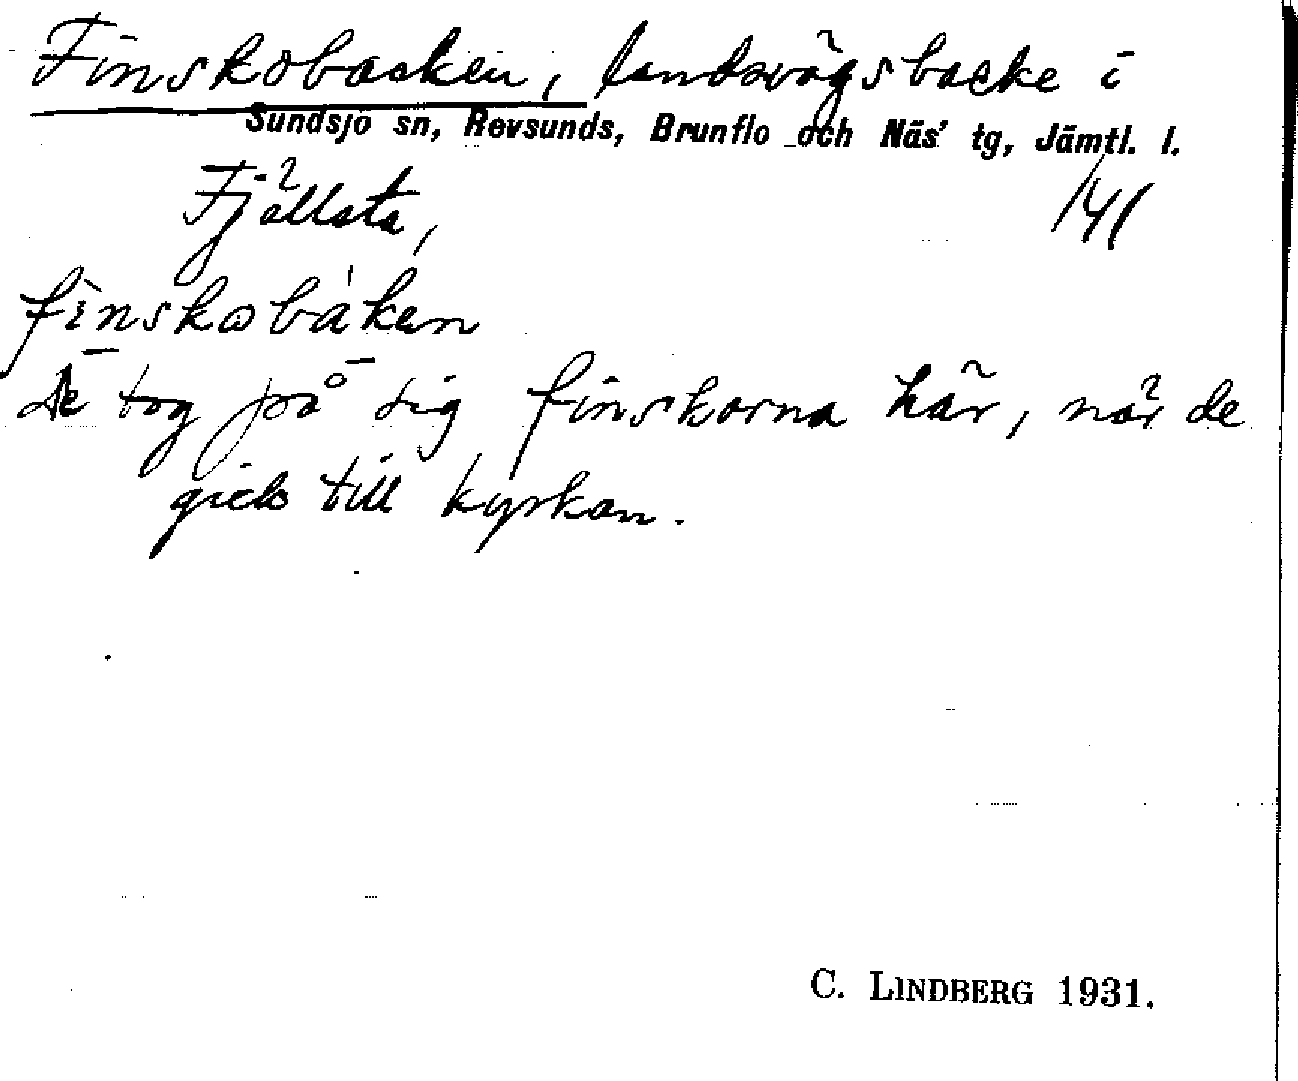 Finskobacken, landsvägsbacke i
Sundsjö sn, Revsunds, Brunflo och Näs' tg, Jämtl. l.
Fjällsta, /41
finskobaken
De tog på sig finskorna här, när de
gick till kyrkan.
C. LINDBERG 1931.